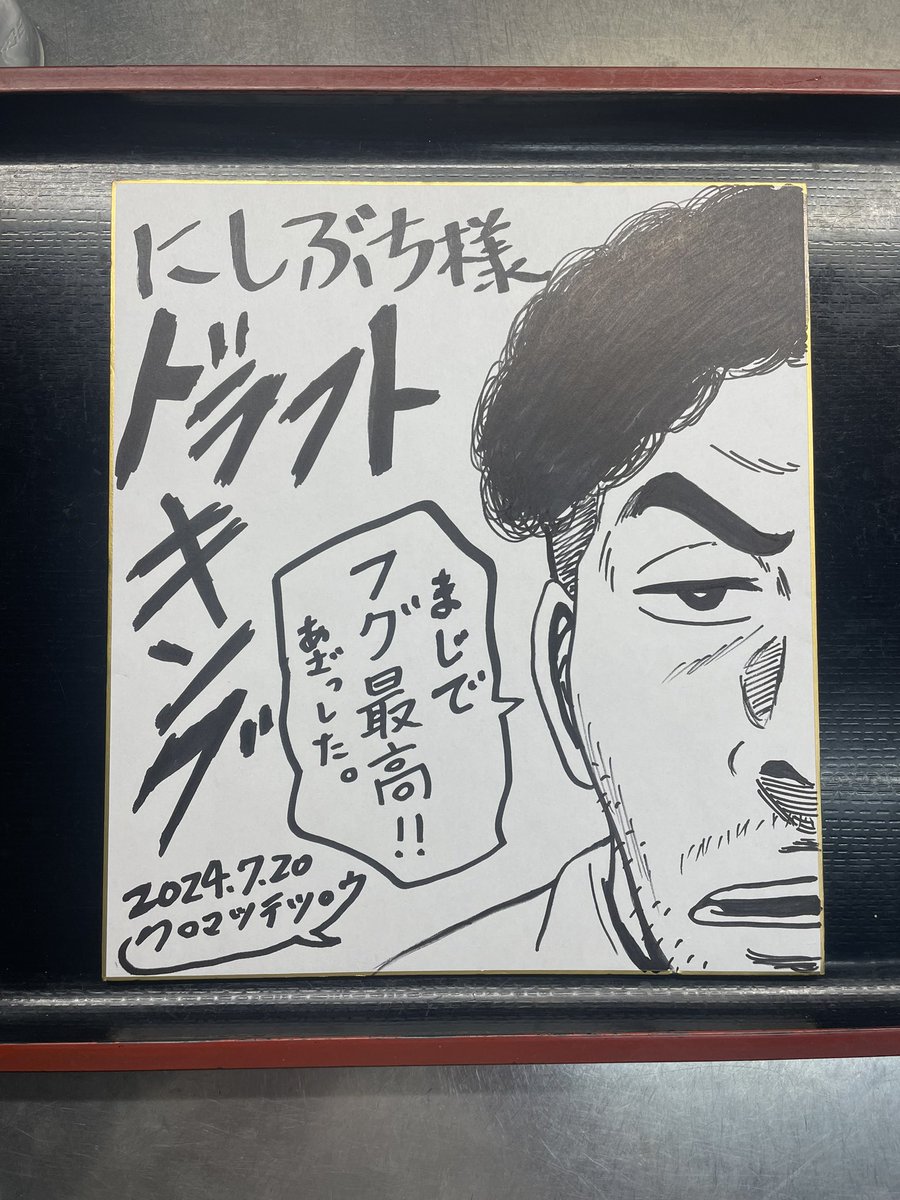 にしぶち様
ドラフト
キング
まじで
フグ最高!!
あざっした。
2024.7.20
クロマツテツロウ